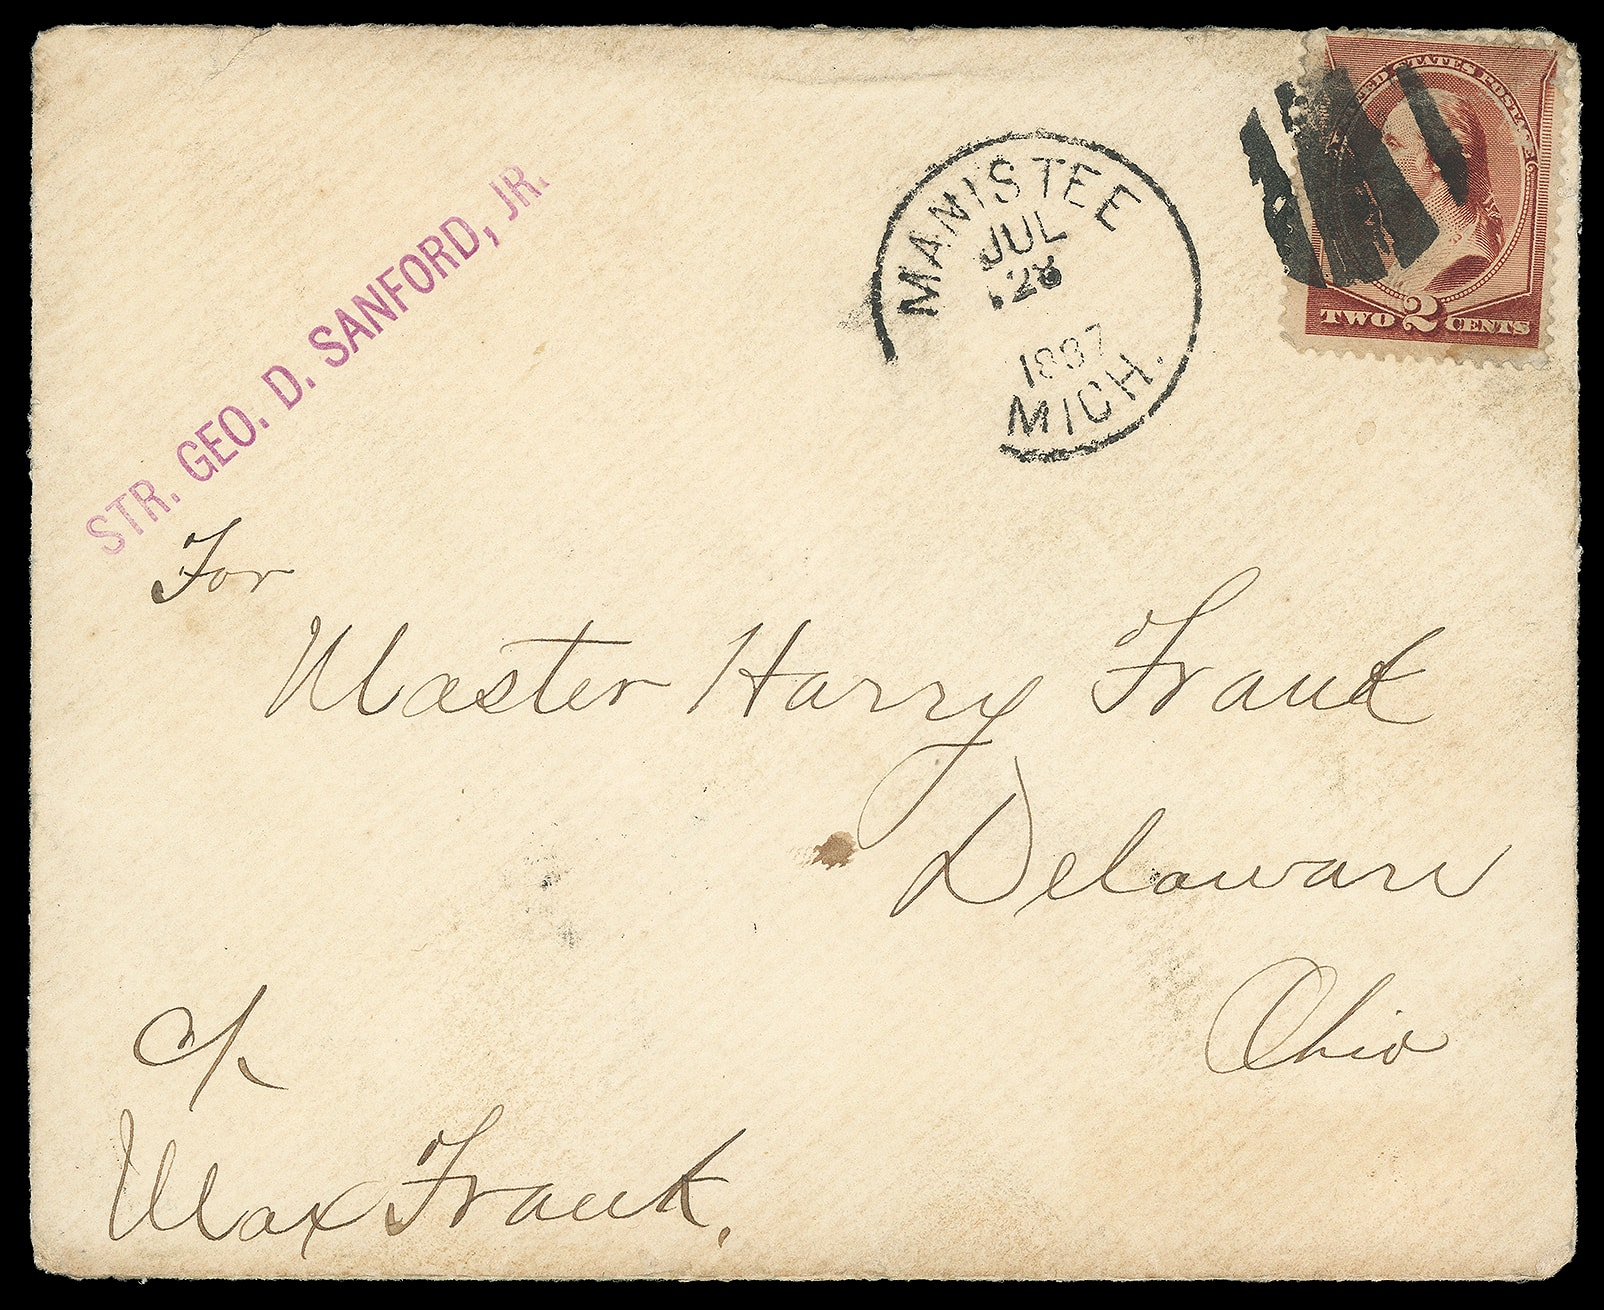 UNITED STATES POSTAGE
TWO 2 CENTS
MANISTEE
JUL
28
1887
MICH.
STR. GEO. D. SANFORD, JR.
For
Master Harry Frank
Delaware
Ohio
c/
Max Frank.